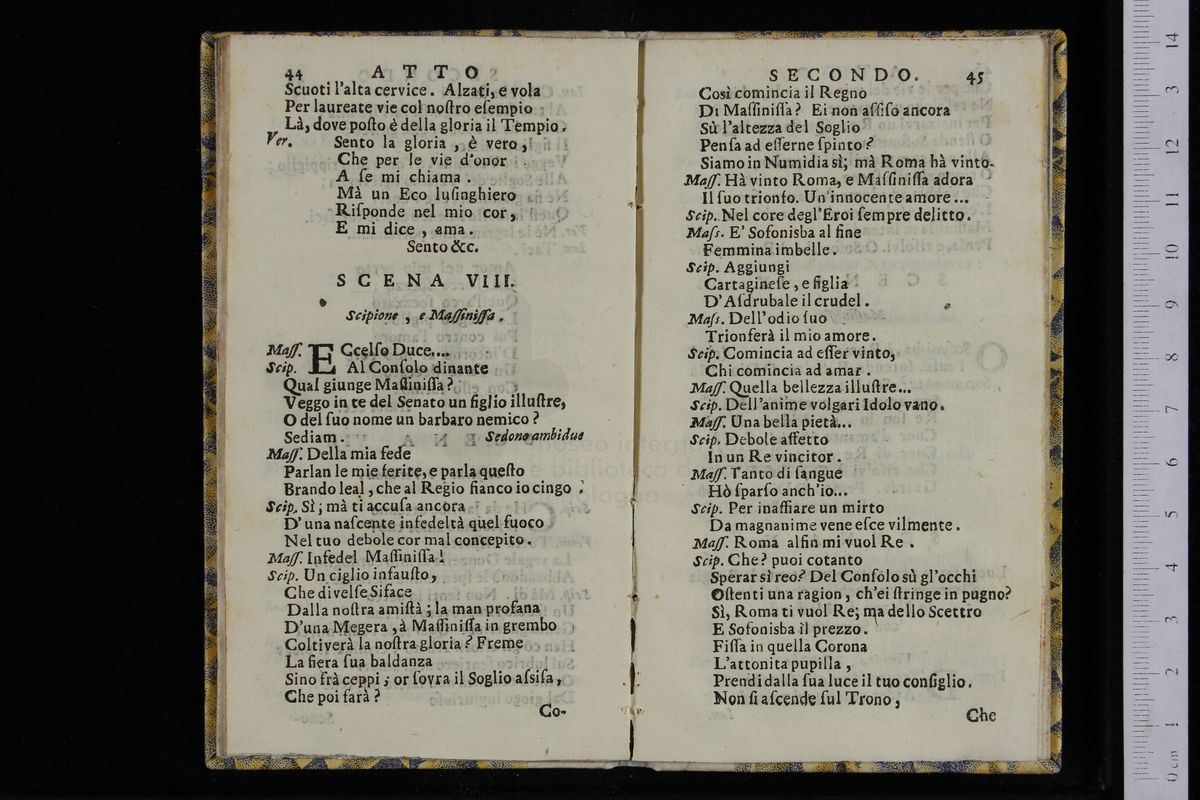 44 ATTO
Scuoti l'alta cervice. Alzati, e vola
Per laureate vie col noſtro eſempio
Là, dove poſto è della gloria il Tempio.
Ver. Sento la gloria, è vero,
Che per le vie d'onor
A ſe mi chiama.
Mà un Eco luſinghiero
Riſponde nel mio cor,
E mi dice, ama.
Sento &c.
SCENA VIII.
Scipione, e Maſſiniſſa.
Maſſ. ECcelſo Duce....
Scip. Al Conſolo dinante
Qual giunge Maſſiniſſa?
Veggo in te del Senato un figlio illuſtre,
O del ſuo nome un barbaro nemico?
Sediam. Sedono ambidue
Maſſ. Della mia fede
Parlan le mie ferite, e parla queſto
Brando leal, che al Regio fianco io cingo.
Scip. Sì; mà ti accuſa ancora
D'una naſcente infedeltà quel fuoco
Nel tuo debole cor mal concepito.
Maſſ. Infedel Maſſiniſſa!
Scip. Un ciglio infauſto,
Che divelſe Siface
Dalla noſtra amiſtà; la man profana
D'una Megera, à Maſſiniſſa in grembo
Coltiverà la noſtra gloria? Freme
La fiera ſua baldanza
Sino frà ceppi; or ſovra il Soglio aſsiſa,
Che poi farà?
Co-
SECONDO. 45
Così comincia il Regno
Di Maſſiniſſa? Ei non aſſiſo ancora
Sù l'altezza del Soglio
Penſa ad eſſerne ſpinto?
Siamo in Numidia sì; mà Roma hà vinto.
Maſſ. Hà vinto Roma, e Maſſiniſſa adora
Il ſuo trionfo. Un'innocente amore...
Scip. Nel core degl'Eroi ſempre delitto.
Maſs. E' Sofonisba al fine
Femmina imbelle.
Scip. Aggiungi
Cartagineſe, e figlia
D'Aſdrubale il crudel.
Maſs. Dell'odio ſuo
Trionferà il mio amore.
Scip. Comincia ad eſſer vinto,
Chi comincia ad amar.
Maſſ. Quella bellezza illuſtre...
Scip. Dell'anime volgari Idolo vano.
Maſſ. Una bella pietà...
Scip. Debole affetto
In un Re vincitor.
Maſſ. Tanto di ſangue
Hò ſparſo anch'io...
Scip. Per inaffiare un mirto
Da magnanime vene eſce vilmente.
Maſſ. Roma alfin mi vuol Re.
Scip. Che? puoi cotanto
Sperar sì reo? Del Conſolo sù gl'occhi
Oſtenti una ragion, ch'ei ſtringe in pugno?
Sì, Roma ti vuol Re; ma dello Scettro
E Sofonisba il prezzo.
Fiſſa in quella Corona
L'attonita pupilla,
Prendi dalla ſua luce il tuo conſiglio.
Non ſi aſcende ſul Trono,
Che